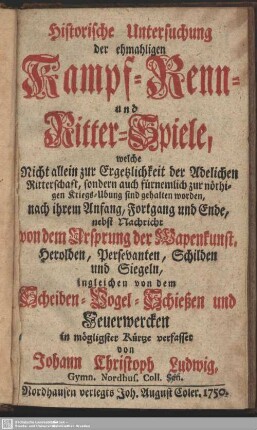 Historische Untersuchung
der ehmahligen
Kampf-Renn-
und
Ritter-Spiele,
welche
Nicht allein zur Ergetzlichkeit der Adelichen
Ritterschaft, sondern auch fürnemlich zur nöthi-
gen Kriegs-Ubung sind gehalten worden,
nach ihrem Anfang, Fortgang und Ende,
nebst Nachricht
von dem Ursprung der Wapenkunst,
Herolden, Persevanten, Schilden
und Siegeln,
ingleichen von dem
Scheiben-Vogel-Schießen und
Feuerwercken
in mögligster Kürtze verfasset
von
Johann Christoph Ludwig,
Gymn. Nordhus. Coll. Sen.
Nordhausen verlegts Joh. August Cöler. 1750.